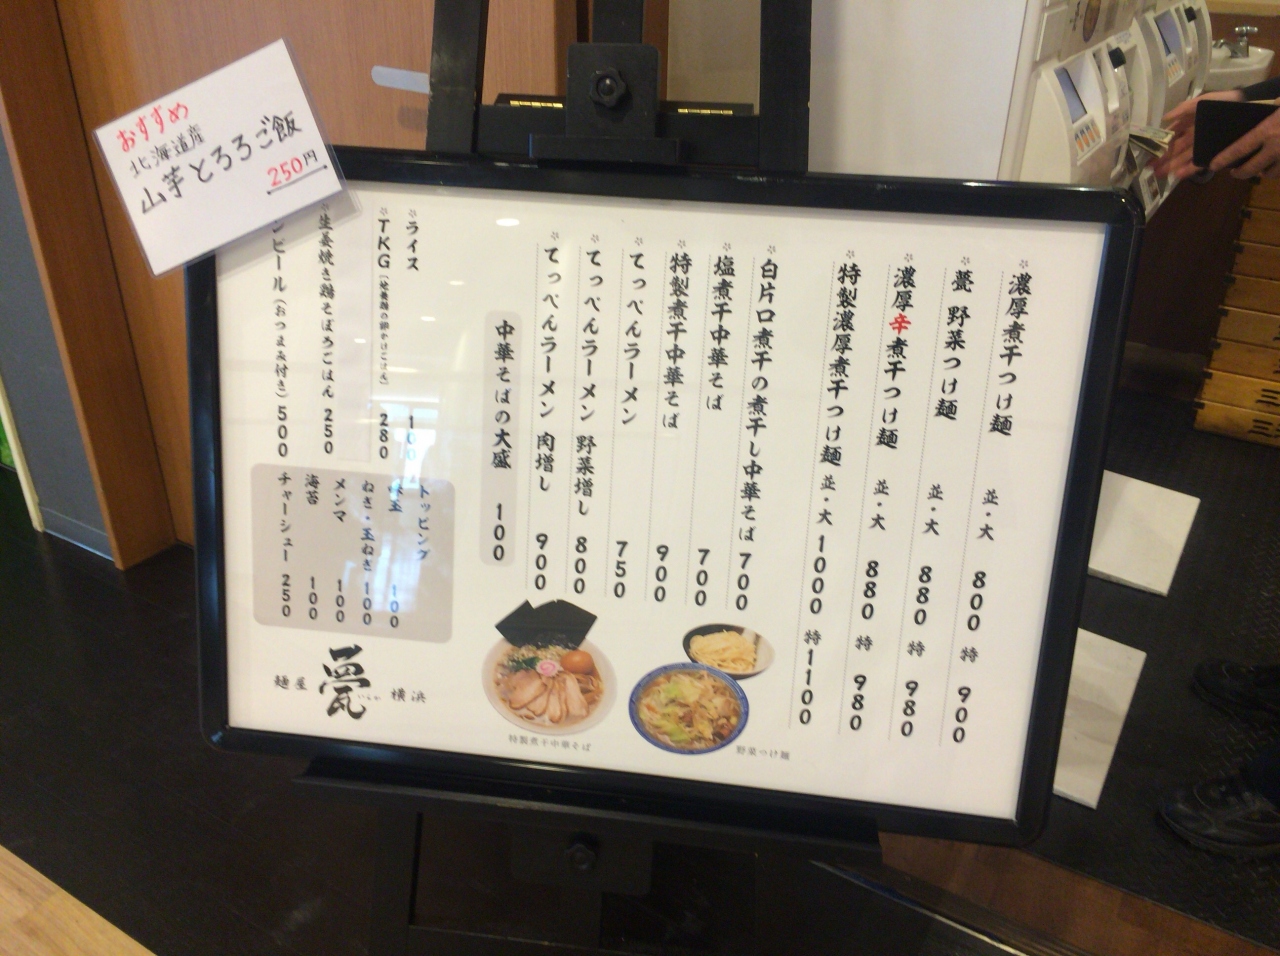 おすすめ
北海道産
山芋とろろご飯
250円
濃厚煮干つけ麺 並・大 800 特 900
甍 野菜つけ麺 並・大 880 特 980
濃厚辛煮干つけ麺 並・大 880 特 980
特製濃厚煮干つけ麺 並・大 1000 特 1100
白片口煮干の煮干し中華そば 700
塩煮干中華そば 700
特製煮干中華そば 900
てっぺんラーメン 750
てっぺんラーメン 野菜増し 800
てっぺんラーメン 肉増し 900
中華そばの大盛 100
ライス 100
TKG(地養鶏の卵かけごはん) 280
生姜焼き鶏そぼろごはん 250
ビール(おつまみ付き) 500
トッピング
味玉 100
ねぎ・玉ねぎ 100
メンマ 100
海苔 100
チャーシュー 250
麺屋 甍 いらか 横浜
特製煮干中華そば
野菜つけ麺